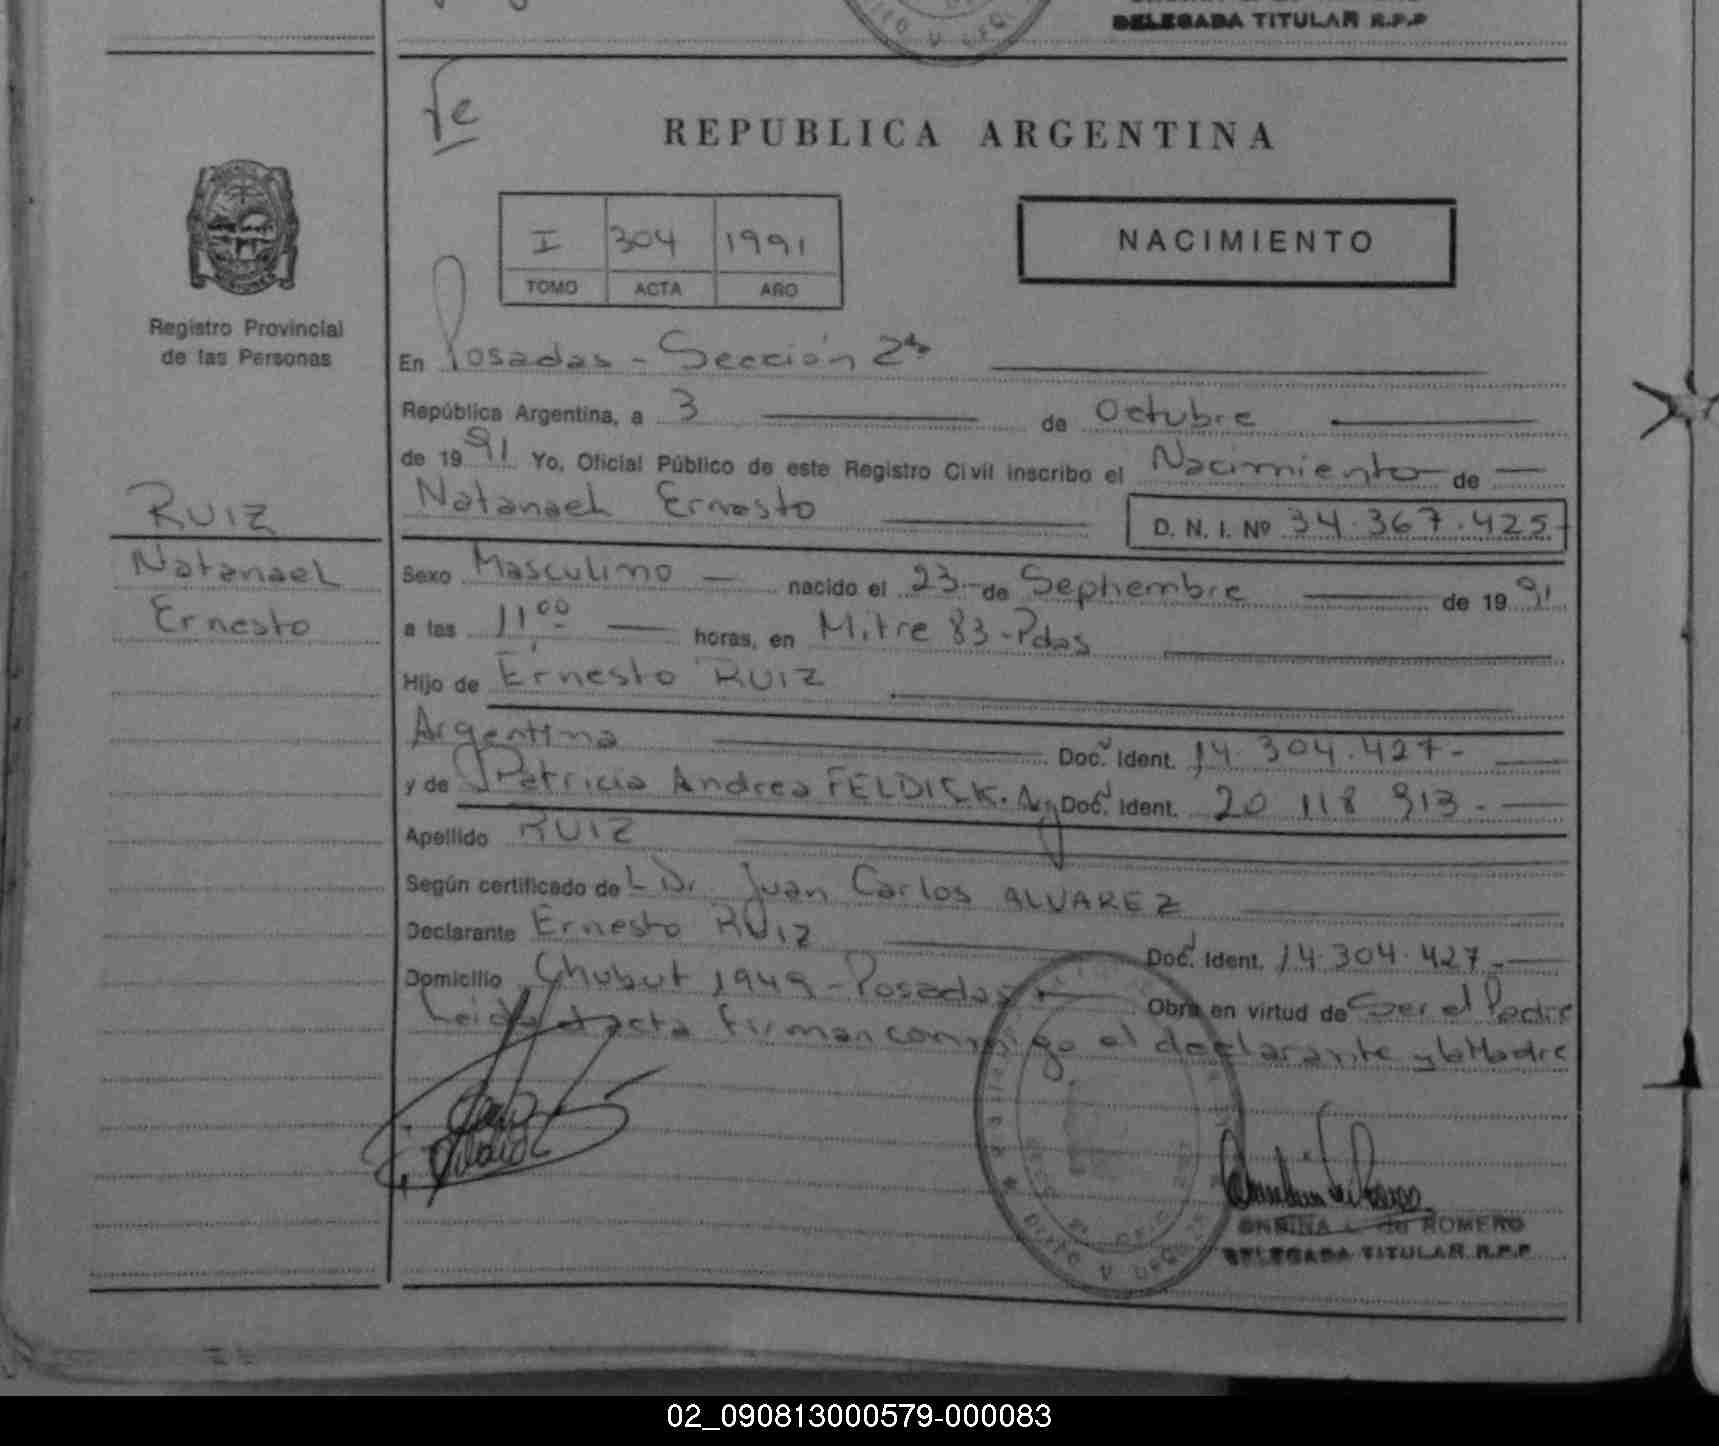 DELEGADA TITULAR R.P.P
REPUBLICA ARGENTINA
I 304 1991
TOMO ACTA AÑO
NACIMIENTO
Registro Provincial
de las Personas
En Posadas - Sección 2da
República Argentina, a 3 de Octubre
de 1991 Yo, Oficial Público de este Registro Civil inscribo el Nacimiento de
Natanael Ernesto D. N. I. Nº 34.367.425
RUIZ
Natanael
Ernesto
Sexo Masculino nacido el 23 de Septiembre de 1991
a las 11,00 horas, en Mitre 83 - Pdas
Hijo de Ernesto RUIZ
Argentina Doc. Ident. 14.304.427-
y de Patricia Andrea FELDICK. Arg Doc. Ident. 20 118 913.-
Apellido RUIZ
Según certificado del Dr Juan Carlos ALVAREZ
Declarante Ernesto RUIZ Doc. Ident. 14.304.427.-
Domicilio Chubut 1949 - Posadas Obra en virtud de Ser el Padre
Leida el acta firman conmigo el declarante y la Madre
L. de ROMERO
DELEGADA TITULAR R.P.P
02_090813000579-000083